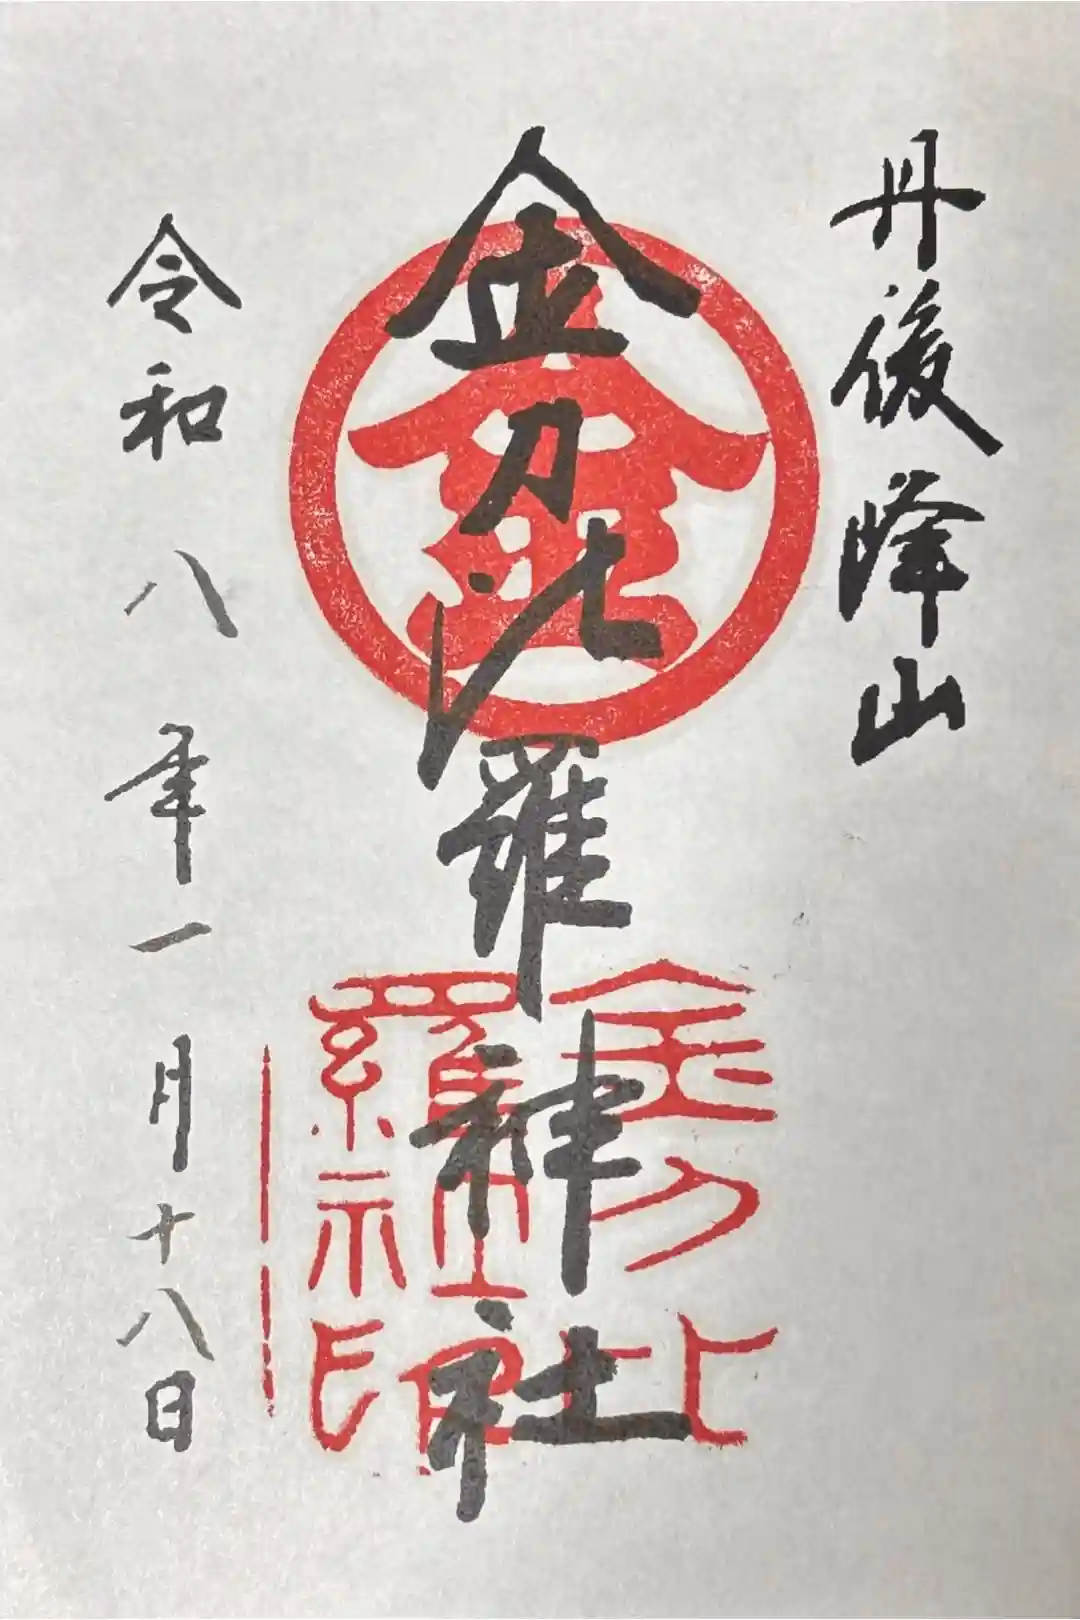 丹後峰山
金刀比羅神社
令和八年一月十八日
金
金刀比
羅社
神印